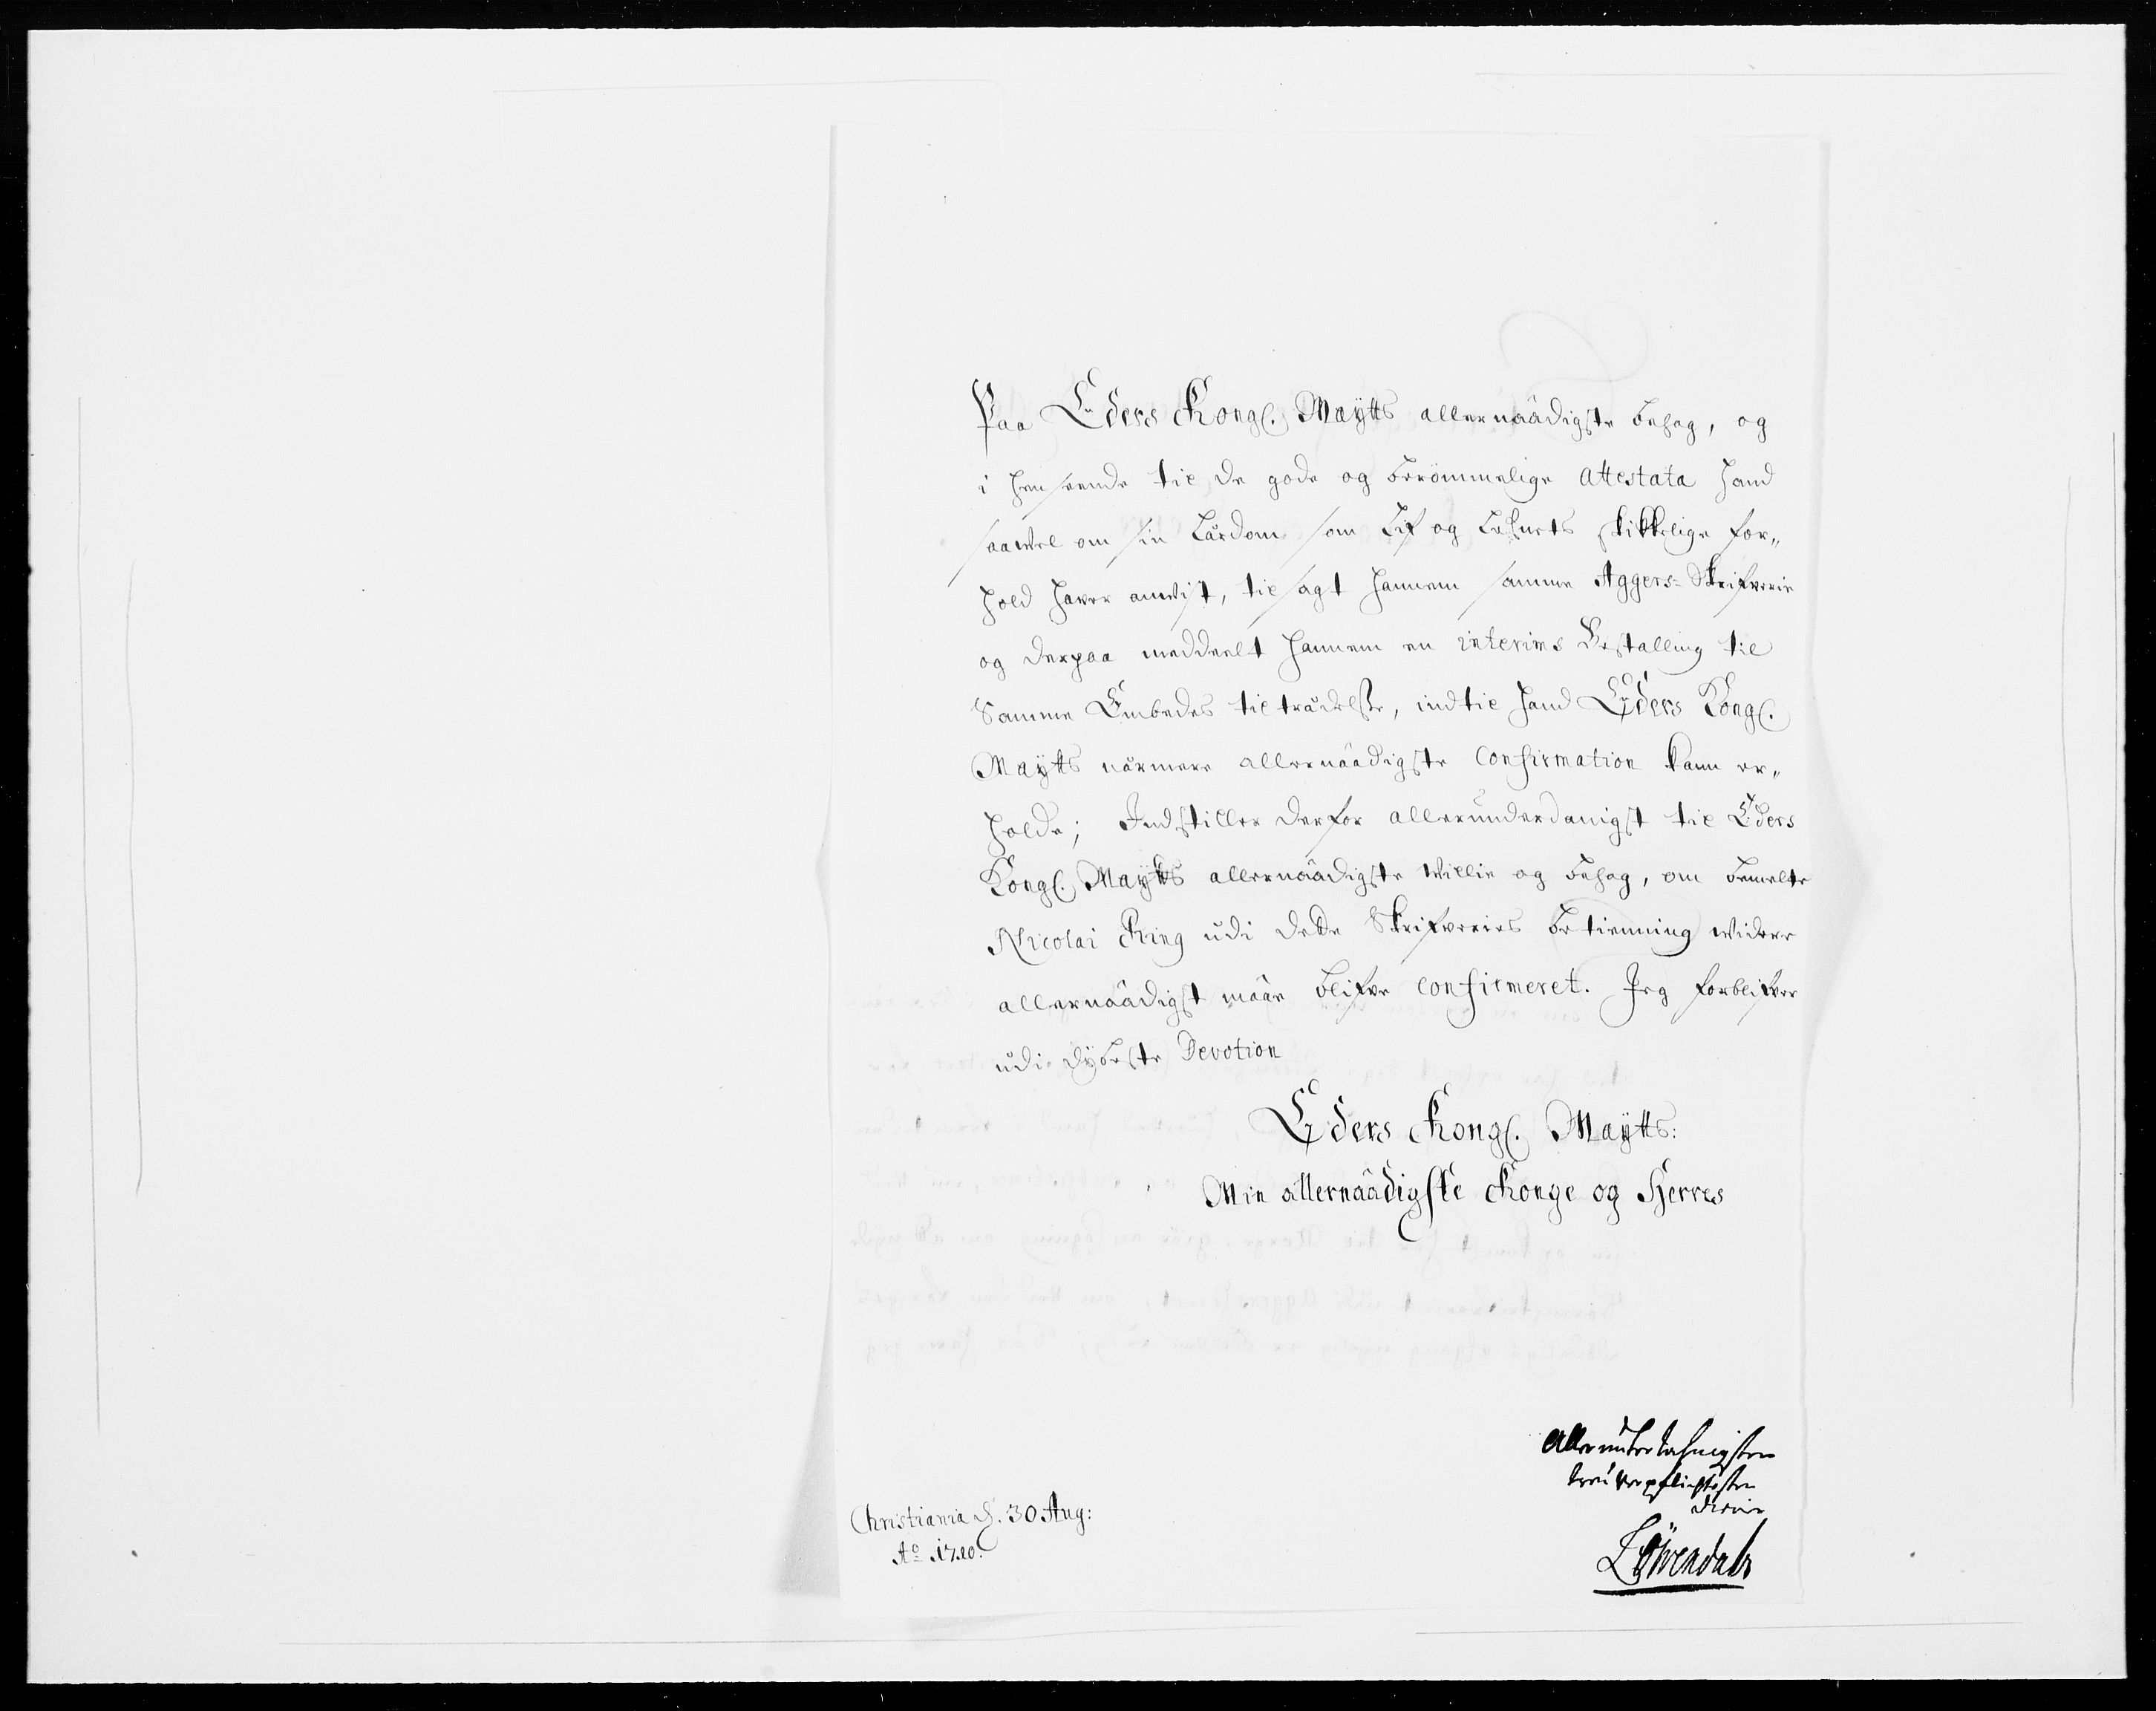 Paa Eders Kongl. Maÿtts allernaâdigste behag, og
i henseende til de gode og berömmelige Attestata hand
saavel om sin Lærdom som Lif og Lefnets skikkelige for„
hold haver anvist, til sagt hannem samme Aggers-Skrifverie
og derpaa meddeelt hannem en interims Bestalling til
Samme Embedes tiltrædelse, indtil hand Eders Kongl.
Maÿtts nærmere allernaâdigste Confirmation kann er„
holde; Indstiller derfor allerunderdanigst til Eders
Kongl. Maÿtts allernaâdigste Villie og behag, om bemelte
Nicolai Ring udi dette Skrifveries betienning videre
allernaâdigst maâe blifve Confirmeret. Jeg forblifver
udi dÿbeste Devotion
Eders Kongl. Maÿtts:
Min allernaâdigste Konge og Herres
Allerunterthänigster
treu verpflichtester
diener
Löwendals
Christiania d. 30 Aug:
Ao 1710.